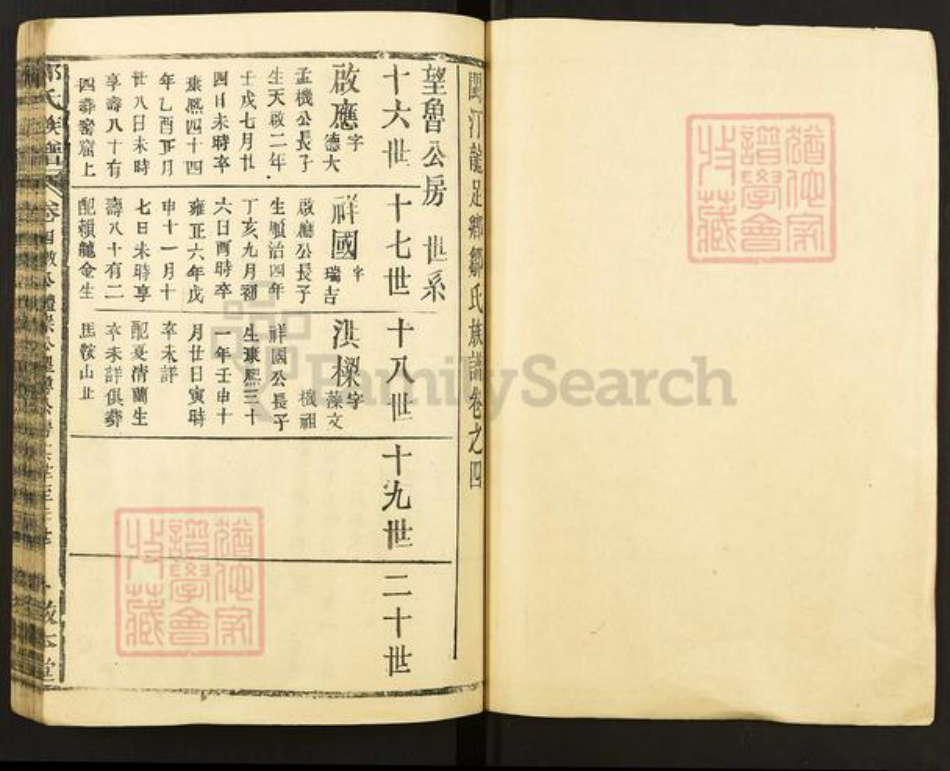 閩汀龍足鄉鄒氏族譜卷之四
望魯公房 世系
十六世
十七世
十八世
十九世
二十世
啟應 字德大
孟機公長子
生天啟二年
壬戌七月廿
四日未時卒
康熙四十四
年乙酉正月
廿八日未時
享壽八十有
四葬窰窟上
祥國 字瑞吉
啟應公長子
生順治四年
丁亥九月初
六日酉時卒
雍正六年戊
申十一月十
七日未時享
壽八十有二
配賴龍金生
淇樑 字藻文
機祖
祥國公長子
生康熙三十
一年壬申十
月廿日寅時
卒未詳
配夏清蘭生
卒未詳俱葬
馬鞍山止
氏族譜
卷四
敦本堂
FamilySearch
猶他家
譜學會
收藏
猶他家
譜學會
收藏